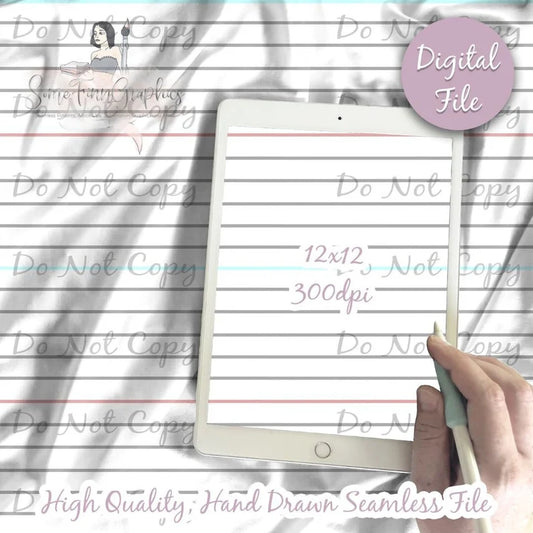 Do Not Copy Do Not Copy
Digital
File
Do Not Copy
SomeFinnGraphics
Do Not Copy Do Not Copy
Do Not Copy Do Not Copy
12x12
Do Not Copy Do Not Copy
300dpi
Do Not Copy Do Not Copy
Do Not Copy Do Not Copy
D High Quality, Hand Drawn Seamless File